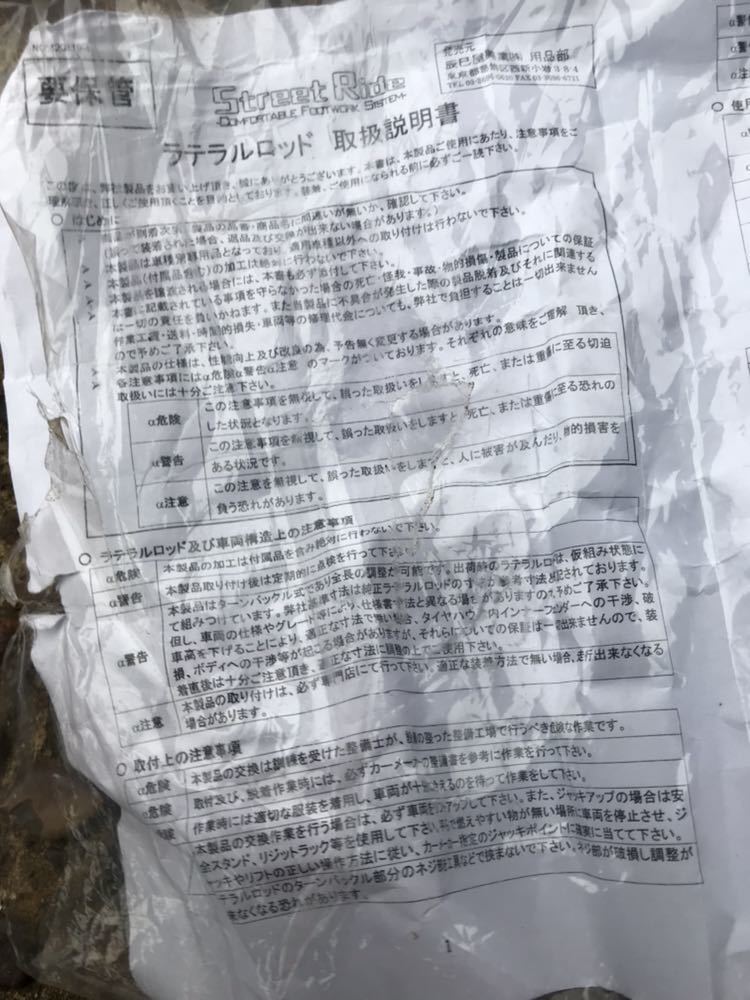 要保管
Street Ride
-COMFORTABLE FOOTWORK SYSTEM-
ラテラルロッド 取扱説明書
発売元
辰巳屋興業㈱ 用品部
東京都葛飾区西新小岩3-8-4
この度は、弊社製品をお買い上げ頂き、誠にありがとうございます。本書は、本製品ご使用にあたり、注意事項をご
理解頂き、正しくご使用頂くことを目的としております。装着、ご使用になられる前に必ずご一読下さい。
○ はじめに
製品が到着次第、製品の品番・商品名に間違いが無いか、確認して下さい。
(誤って装着された場合、返品及び交換が出来ない場合があります。)
本製品は車種専用品となっており、適用車種以外への取り付けは行わないで下さい。
本製品(付属品含む)の加工は絶対に行わないで下さい。
本製品を譲渡される場合には、本書も必ず添付して下さい。
本書に記載されている事項を守らなかった場合の死亡・怪我・事故・物的損傷・製品についての保証
は一切の責任を負いかねます。また当製品に不具合が発生した際の製品脱着及びそれに関連する
作業工賃・送料・時間的損失・車両等の修理代金についても、弊社で負担することは一切出来ません
ので予めご了承下さい。
本製品の仕様は、性能向上及び改良の為、予告無く変更する場合があります。
各注意事項にはα危険α警告α注意 のマークがついております。それぞれの意味をご理解 頂き、
取扱いには十分ご注意下さい。
α危険
この注意事項を無視して、誤った取扱いをしますと、死亡、または重傷に至る切迫
した状況となります。
α警告
この注意事項を無視して、誤った取扱いをしますと、死亡、または重傷に至る恐れの
ある状況です。
α注意
この注意事項を無視して、誤った取扱いをしますと、人に被害が及んだり、物的損害を
負う恐れがあります。
○ ラテラルロッド及び車両構造上の注意事項
α危険 本製品の加工は付属品を含み絶対に行わないで下さい。
α警告 本製品取り付け後は定期的に点検を行って下さい。
α警告
本製品はターンバックル式であり全長の調整が可能です。出荷時のラテラルロッドは、仮組み状態に
て組みつけています。弊社基準寸法は純正ラテラルロッドの寸法が参考寸法と記されております。
但し、車両の仕様やグレード等により、仕様書寸法と異なる場合がありますので予めご了承下さい。
車高を下げることにより、適正な寸法で無い場合、タイヤハウス内インナーフェンダーへの干渉、破
損、ボディへの干渉等が起こる場合がありますが、それらについての保証は一切出来ませんので、装
着直後は十分ご注意頂き、適正な寸法に調整の上でご使用下さい。
α注意
本製品の取り付けは、必ず専門店にて行って下さい。適正な装着方法で無い場合、走行出来なくなる
場合があります。
○ 取付上の注意事項
α危険 本製品の交換は訓練を受けた整備士が、設備の整った整備工場で行うべき危険な作業です。
α危険 取付及び、脱着作業時には、必ずカーメーカーの整備書を参考に作業を行って下さい。
作業時には適切な服装を着用し、車両が十分冷えるのを待って作業をして下さい。
本製品の交換作業を行う場合は、必ず車両をリフトアップして下さい。また、ジャッキアップの場合は安
全スタンド、リジットラック等を使用して下さい。引火や燃えやすい物が無い場所に車両を停止させ、ジ
ャッキやリフトの正しい操作方法に従い、カーメーカー指定のジャッキポイントに確実に当てて下さい。
テラルロッドのターンバックル部分のネジ部を工具などで挟まないで下さい。ネジ部が破損し調整が
来なくなる恐れがあります。
1
○ 使用